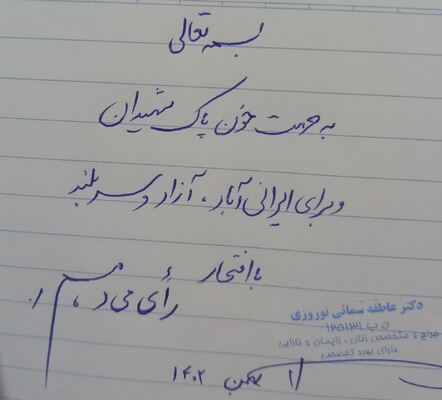 بسمه تعالی
به حرمت خون پاک شهیدان
و برای ایرانی آباد، آزاد و سربلند
با افتخار
رأی می دهیم.
دکتر عاطفه سمائی نوروزی
ن پ ۱۲۵۱۳۱
جراح و متخصص زنان، زایمان و نازایی
دارای بورد تخصصی
بهمن ۱۴۰۲